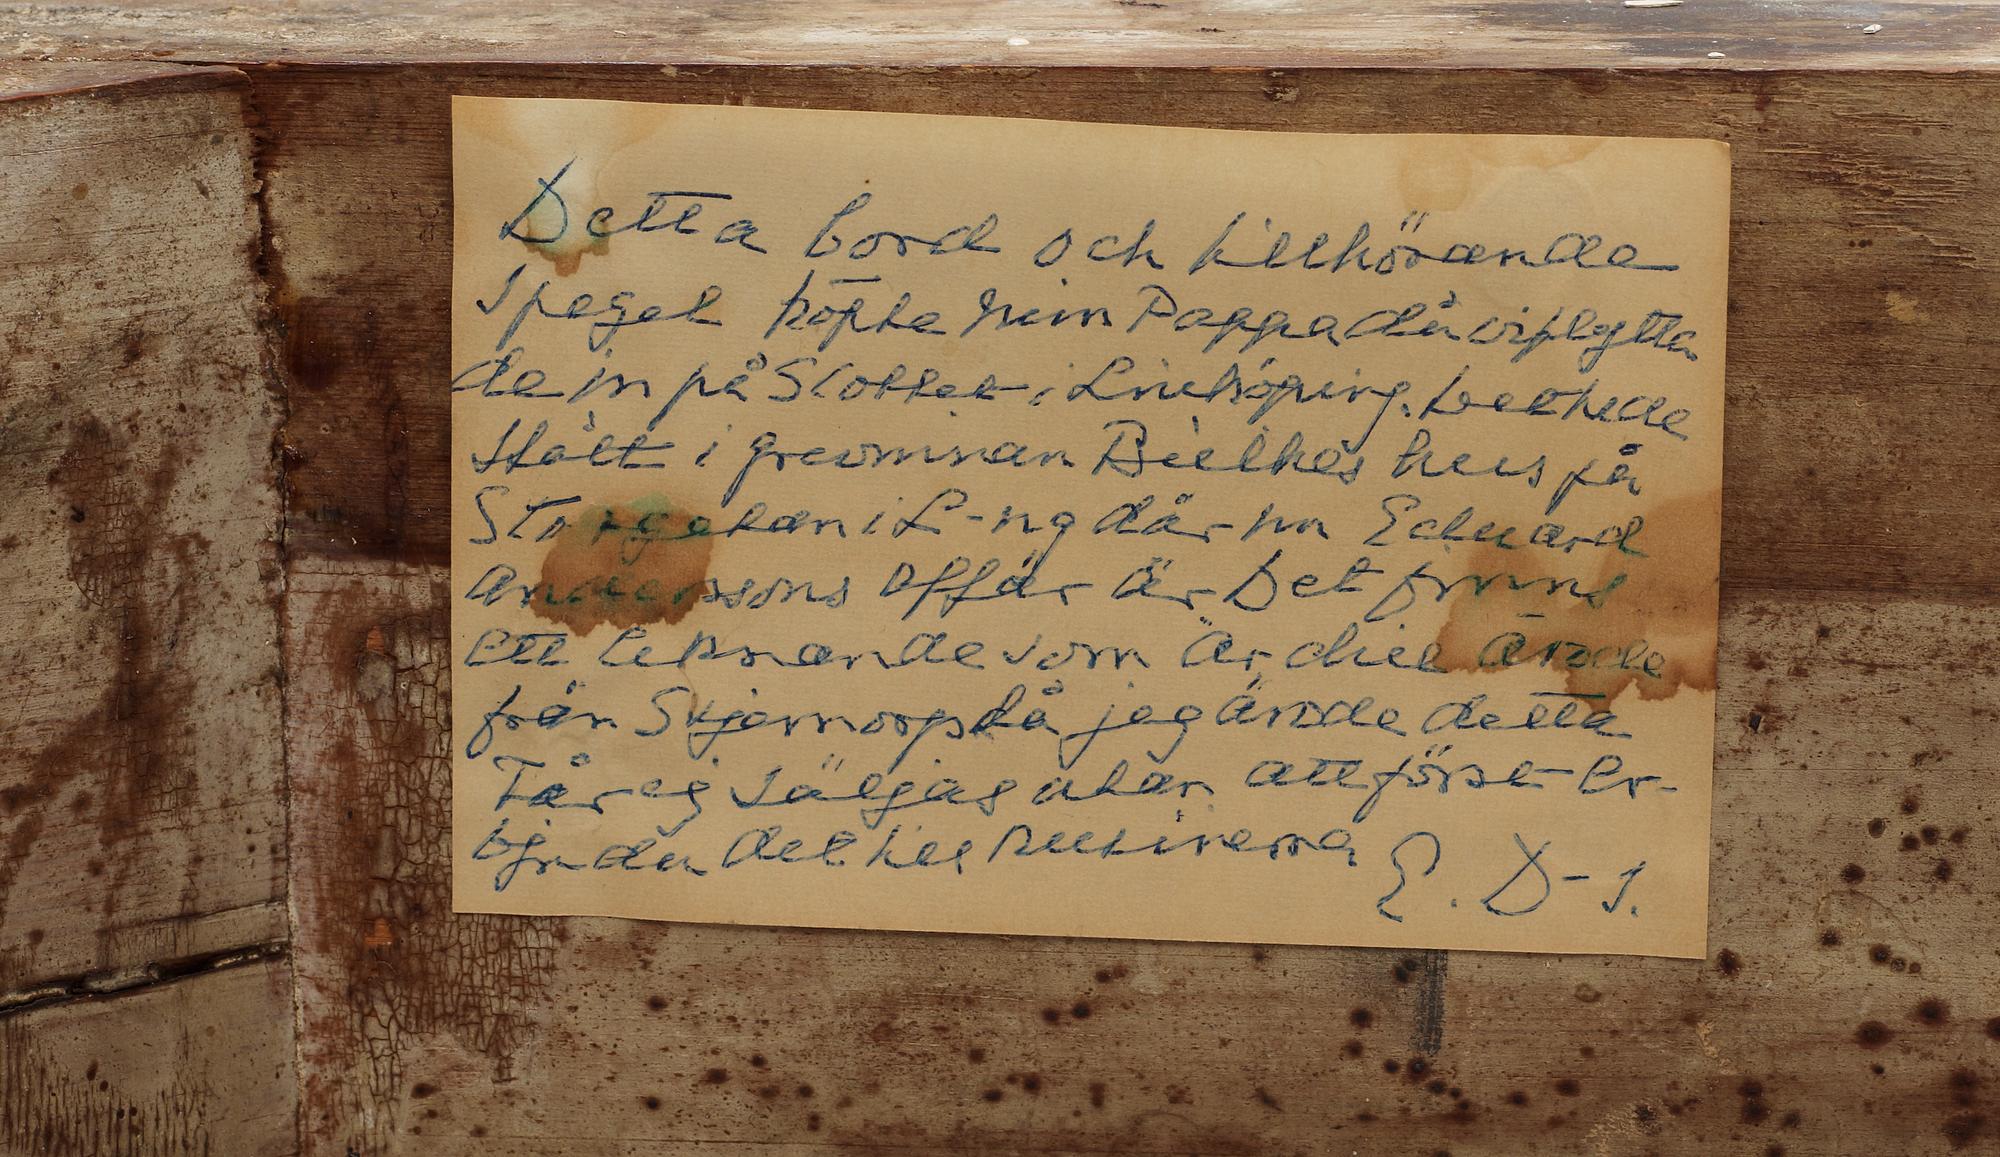 Detta bord och tillhörande
spegel köpte min Pappa då vi flytta
de in på Slottet i Linköping. Det hade
stått i grevinnan Bielkes hus på
Storgatan i L-ng där nu Edward
Anderssons affär är Det finns
ett liknande som Ardiel ärvde
från Stjernorp då jag ärvde detta
Får ej säljas utan att först er-
bjudas det till
E. D-s.